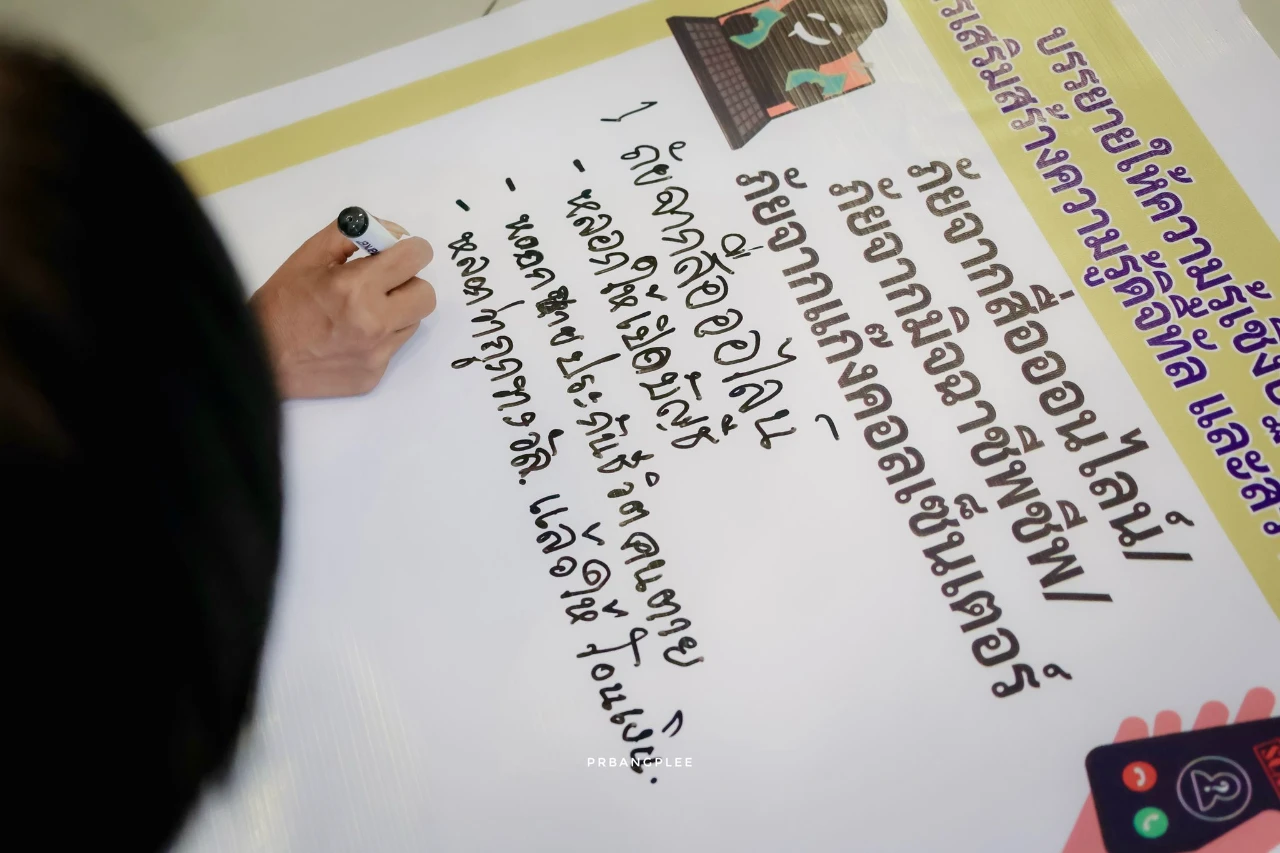 บรรยายให้ความรู้เชิง
เสริมสร้างความรู้ดิจิทัล และ
ภัยจากสื่อออนไลน์/
ภัยจากมิจฉาชีพชีพ/
ภัยจากแก๊งคอลเซ็นเตอร์
ภัยจากสื่อออนไลน์
- หลอกให้เปิดบัญชี
- หลอกขายประกันชีวิตคนตาย
- หลอกทำธุรกรรม แล้วให้โอนเงิน.
PRBANGPLEE